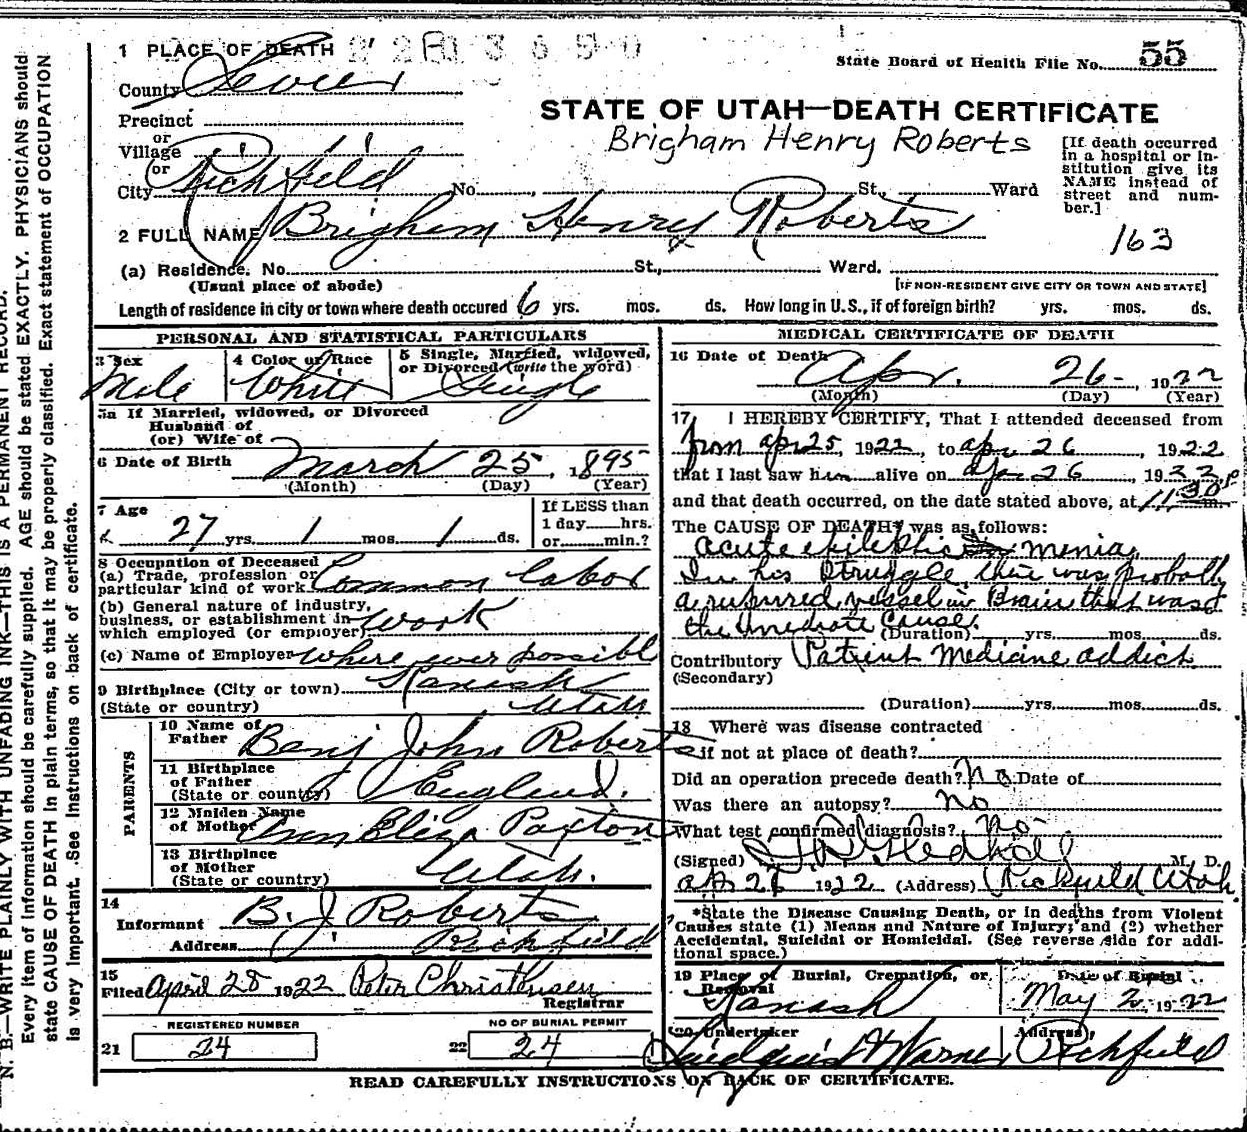 1 PLACE OF DEATH
State Board of Health File No. 55
County Sevier
STATE OF UTAH—DEATH CERTIFICATE
Precinct
or
Village
or
Brigham Henry Roberts
[If death occurred
in a hospital or in-
stitution give its
NAME instead of
street and num-
ber.]
City Richfield No. , St., Ward
2 FULL NAME Brigham Henry Roberts
163
(a) Residence. No. St., Ward.
(Usual place of abode)
[IF NON-RESIDENT GIVE CITY OR TOWN AND STATE]
Length of residence in city or town where death occured 6 yrs. mos. ds. How long in U.S., if of foreign birth? yrs. mos. ds.
PERSONAL AND STATISTICAL PARTICULARS
3 Sex
Male
4 Color or Race
White
5 Single, Married, widowed,
or Divorced (write the word)
Single
5a If Married, widowed, or Divorced
Husband of
(or) Wife of
6 Date of Birth March 25, 1895
(Month) (Day) (Year)
7 Age
27 yrs. 1 mos. 1 ds.
If LESS than
1 day hrs.
or min.?
8 Occupation of Deceased
(a) Trade, profession or
particular kind of work Common labor
(b) General nature of industry,
business, or establishment in
which employed (or employer) work
(c) Name of Employer where ever possible
9 Birthplace (City or town) Kanosh
(State or country) Utah
PARENTS
10 Name of
Father Benj John Roberts
11 Birthplace
of Father
(State or country) England.
12 Maiden Name
of Mother Ann Eliza Paxton
13 Birthplace
of Mother
(State or country) Utah.
14
Informant B. J Roberts
Address Richfield
15
Filed April 28 1922 Peter Christensen
Registrar
REGISTERED NUMBER
21 24
NO OF BURIAL PERMIT
22 24
MEDICAL CERTIFICATE OF DEATH
16 Date of Death Apr. 26-, 1922
(Month) (Day) (Year)
17 I HEREBY CERTIFY, That I attended deceased from
from apr 25, 1922, to apr 26, 1922
that I last saw him alive on apr 26, 1922
and that death occurred, on the date stated above, at 11,30 P m.
The CAUSE OF DEATH* was as follows:
acute epileptic menia
In his struggle there was probally
a rupured vessel in Brain that was
the imediate cause.
(Duration) yrs. mos. ds.
Contributory Patient Medicine addict
(Secondary)
(Duration) yrs. mos. ds.
18 Where was disease contracted
if not at place of death?
Did an operation precede death? no Date of
Was there an autopsy? no
What test confirmed diagnosis? no
(Signed) M. D.
1922 (Address) Richfield Utah
*State the Disease Causing Death, or in deaths from Violent
Causes state (1) Means and Nature of Injury; and (2) whether
Accidental, Suicidal or Homicidal. (See reverse side for addi-
tional space.)
19 Place of Burial, Cremation, or
Removal
Kanosh
Date of Burial
May 2, 1922
20 Undertaker
Address
Richfield
READ CAREFULLY INSTRUCTIONS ON BACK OF CERTIFICATE.
N. B.—WRITE PLAINLY WITH UNFADING INK—THIS IS A PERMANENT RECORD.
Every item of information should be carefully supplied. AGE should be stated EXACTLY. PHYSICIANS should
state CAUSE OF DEATH in plain terms, so that it may be properly classified. Exact statement of OCCUPATION
is very important. See instructions on back of certificate.